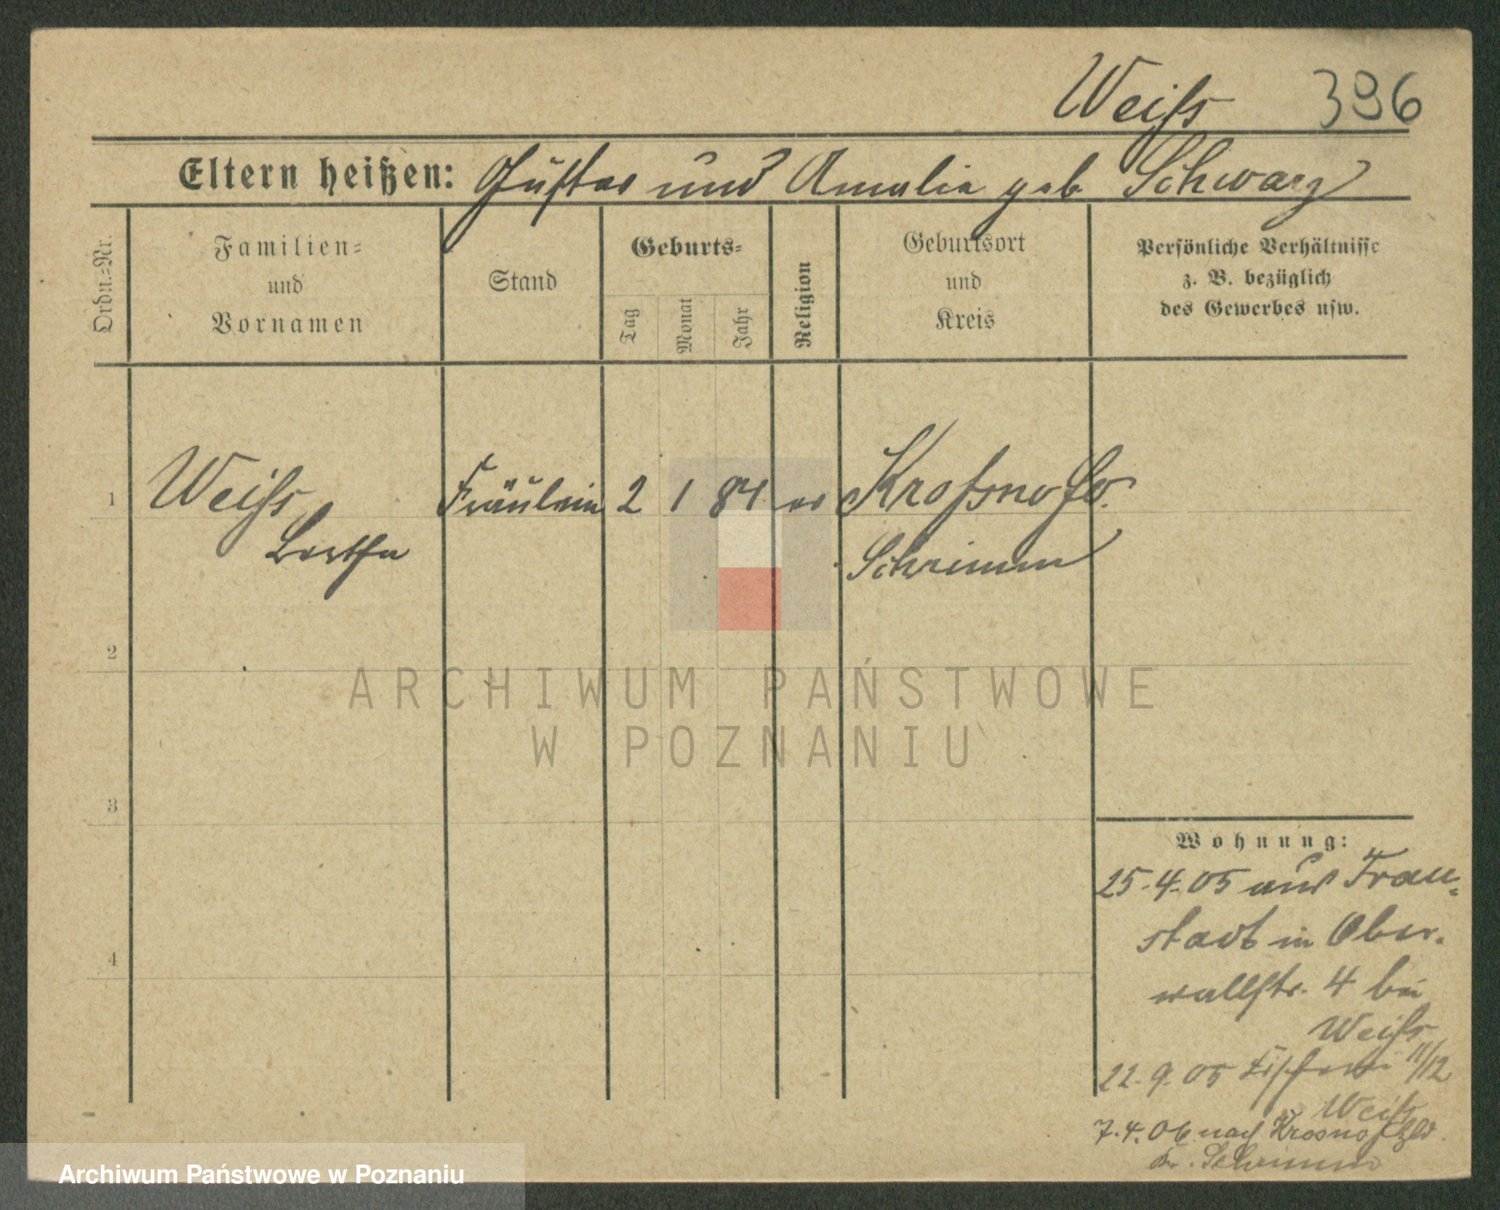 Weiß 396
Eltern heißen: Gustav und Amalie geb Schwarz
Ordn.=Nr.
Familien=
und
Vornamen
Stand
Geburts=
Tag
Monat
Jahr
Religion
Geburtsort
und
Kreis
Persönliche Verhältnisse
z. B. bezüglich
des Gewerbes usw.
1 Weiß Fräulein 2 1 84 ev Kroßno
Bertha Schrimm
2
3
4
Wohnung:
25.4.05 aus Frau=
stadt in Ober=
wallstr. 4 bei
Weiß
22.9.05 11/12
Weiß
7.4.06 nach Krosno
Kr. Schrimm
ARCHIWUM PAŃSTWOWE
W POZNANIU
Archiwum Państwowe w Poznaniu